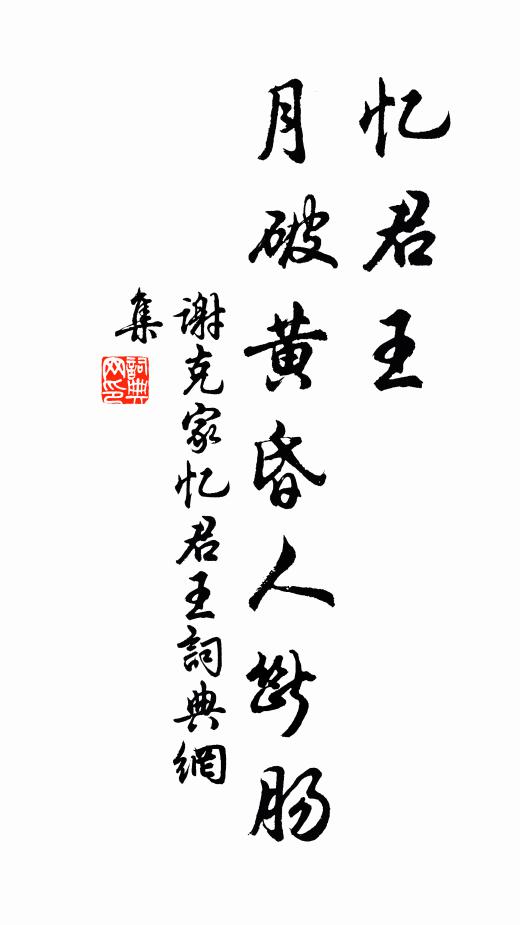 忆君王
月破黄昏人断肠
谢克家忆君王詞典網
集
詞典
网印